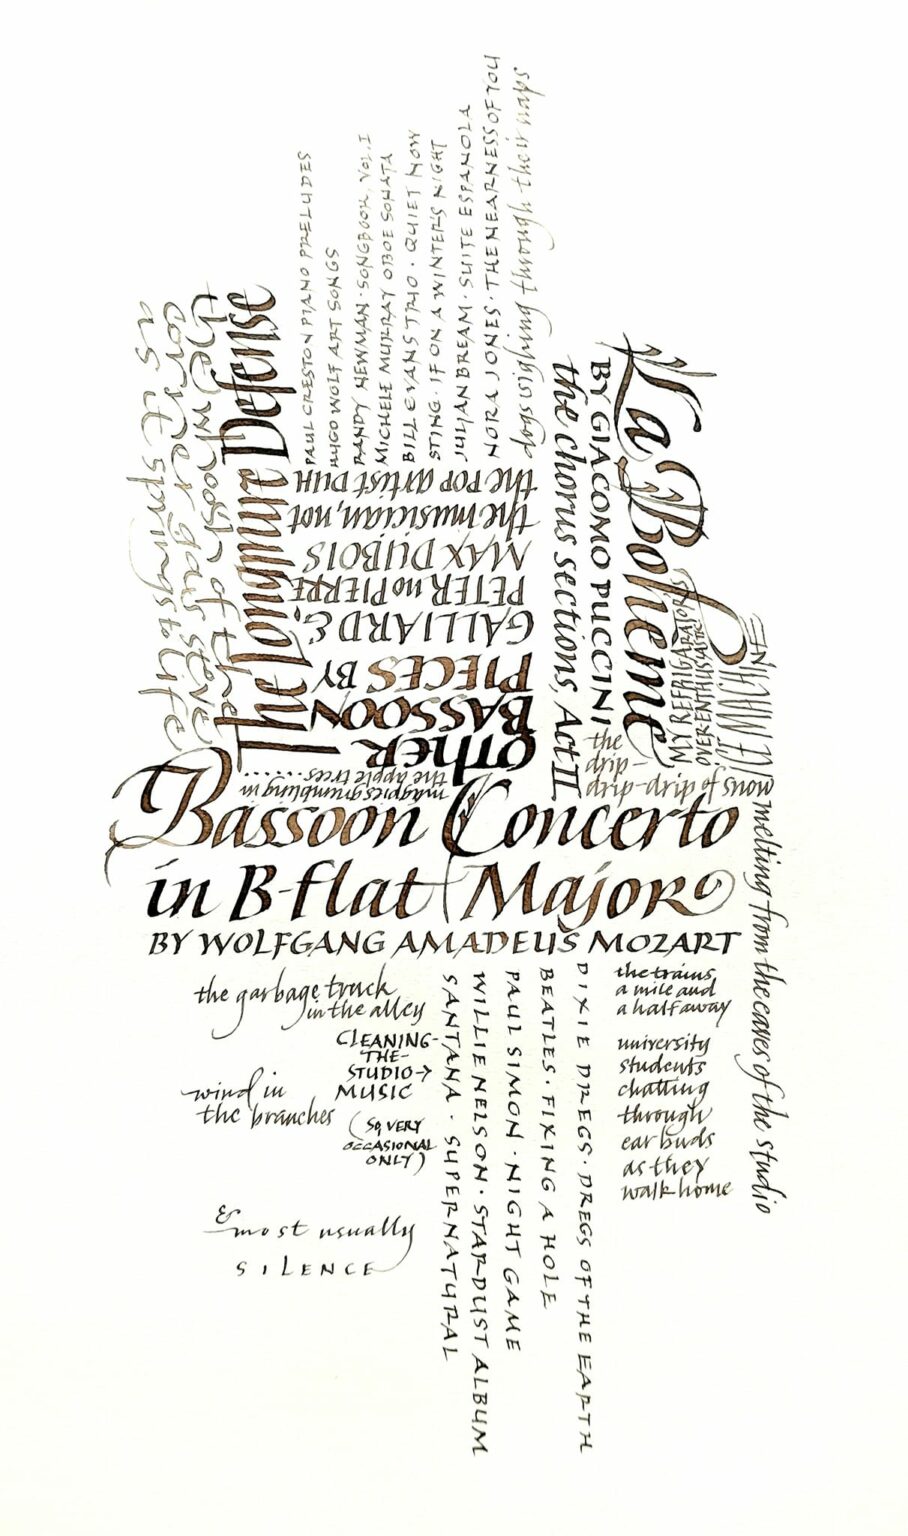 Bassoon Concerto
in B-flat Major
BY WOLFGANG AMADEUS MOZART
the garbage truck
in the alley
CLEANING-
THE-
STUDIO→
MUSIC
(SO, VERY
OCCASIONAL
ONLY)
wind in
the branches
& most usually
SILENCE
SANTANA · SUPERNATURAL
WILLIE NELSON · STARDUST ALBUM
PAUL SIMON · NIGHT GAME
BEATLES · FIXING A HOLE
DIXIE DREGS · DREGS OF THE EARTH
the trains
a mile and
a half away
university
students
chatting
through
ear buds
as they
walk home
the
drip-
drip-drip of snow
melting from the eaves of the studio
MY REFRIGERATOR'S
OVER-ENTHUSIASTIC
La Boheme
BY GIACOMO PUCCINI
the chorus sections, Act II
OTHER
BASSOON
PIECES BY
GALLIARD &
PETER no PIERRE
MAX DUBOIS
the musician, not
the POP artist DUH
magpies grumbling in
the apple trees....
PAUL CRESTON PIANO PRELUDES
HUGO WOLF ART SONGS
RANDY NEWMAN · SONGBOOK, VOL. I
MICHELE MURRAY OBOE SONATA
BILL EVANS TRIO · QUIET NOW
STING · IF ON A WINTER'S NIGHT
JULIAN BREAM · SUITE ESPANOLA
NORA JONES · THE NEARNESS OF YOU
dogs sighing through their naps
The Tongnure Defense
the whoosh of the
corner gas stove
as it springs to life